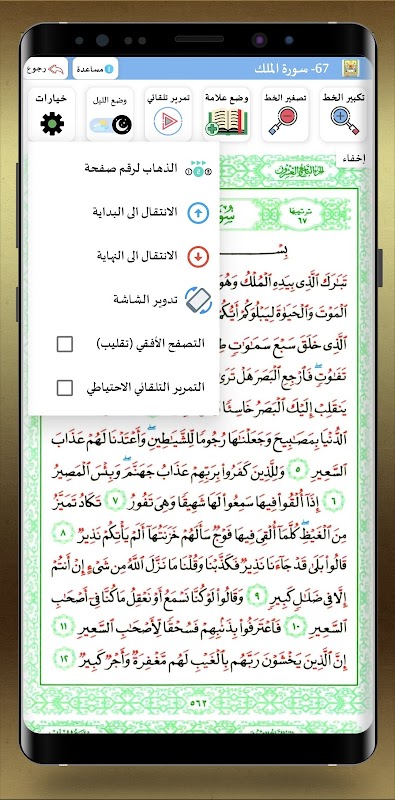 67- سورة الملك
مساعدة
رجوع
تكبير الخط
تصغير الخط
وضع علامة
تمرير تلقائي
وضع الليل
خيارات
إخفاء
الذهاب لرقم صفحة
الانتقال الى البداية
الانتقال الى النهاية
تدوير الشاشة
التصفح الأفقي (تقليب)
التمرير التلقائي الاحتياطي
ترتيبها
٦٧
بِسْ
تَبَارَكَ الَّذِي بِيَدِهِ الْمُلْكُ وَهُوَ
الْمَوْتَ وَالْحَيَاةَ لِيَبْلُوَكُمْ أَيُّكُمْ
الَّذِي خَلَقَ سَبْعَ سَمَاوَاتٍ
تَفَاوُتٍ فَارْجِعِ الْبَصَرَ هَلْ تَرَى
يَنقَلِبْ إِلَيْكَ الْبَصَرُ خَاسِئًا
الدُّنْيَا بِمَصَابِيحَ وَجَعَلْنَاهَا رُجُومًا لِّلشَّيَاطِينِ وَأَعْتَدْنَا لَهُمْ عَذَابَ
السَّعِيرِ ٥ وَلِلَّذِينَ كَفَرُوا بِرَبِّهِمْ عَذَابُ جَهَنَّمَ وَبِئْسَ الْمَصِيرُ
٦ إِذَا أُلْقُوا فِيهَا سَمِعُوا لَهَا شَهِيقًا وَهِيَ تَفُورُ ٧ تَكَادُ تَمَيَّزُ
مِنَ الْغَيْظِ كُلَّمَا أُلْقِيَ فِيهَا فَوْجٌ سَأَلَهُمْ خَزَنَتُهَا أَلَمْ يَأْتِكُمْ نَذِيرٌ ٨
قَالُوا بَلَى قَدْ جَاءَنَا نَذِيرٌ فَكَذَّبْنَا وَقُلْنَا مَا نَزَّلَ اللَّهُ مِن شَيْءٍ إِنْ أَنتُمْ
إِلَّا فِي ضَلَالٍ كَبِيرٍ ٩ وَقَالُوا لَوْ كُنَّا نَسْمَعُ أَوْ نَعْقِلُ مَا كُنَّا فِي أَصْحَابِ
السَّعِيرِ ١٠ فَاعْتَرَفُوا بِذَنبِهِمْ فَسُحْقًا لِّأَصْحَابِ السَّعِيرِ ١١
إِنَّ الَّذِينَ يَخْشَوْنَ رَبَّهُم بِالْغَيْبِ لَهُم مَّغْفِرَةٌ وَأَجْرٌ كَبِيرٌ ١٢
٥٦٢